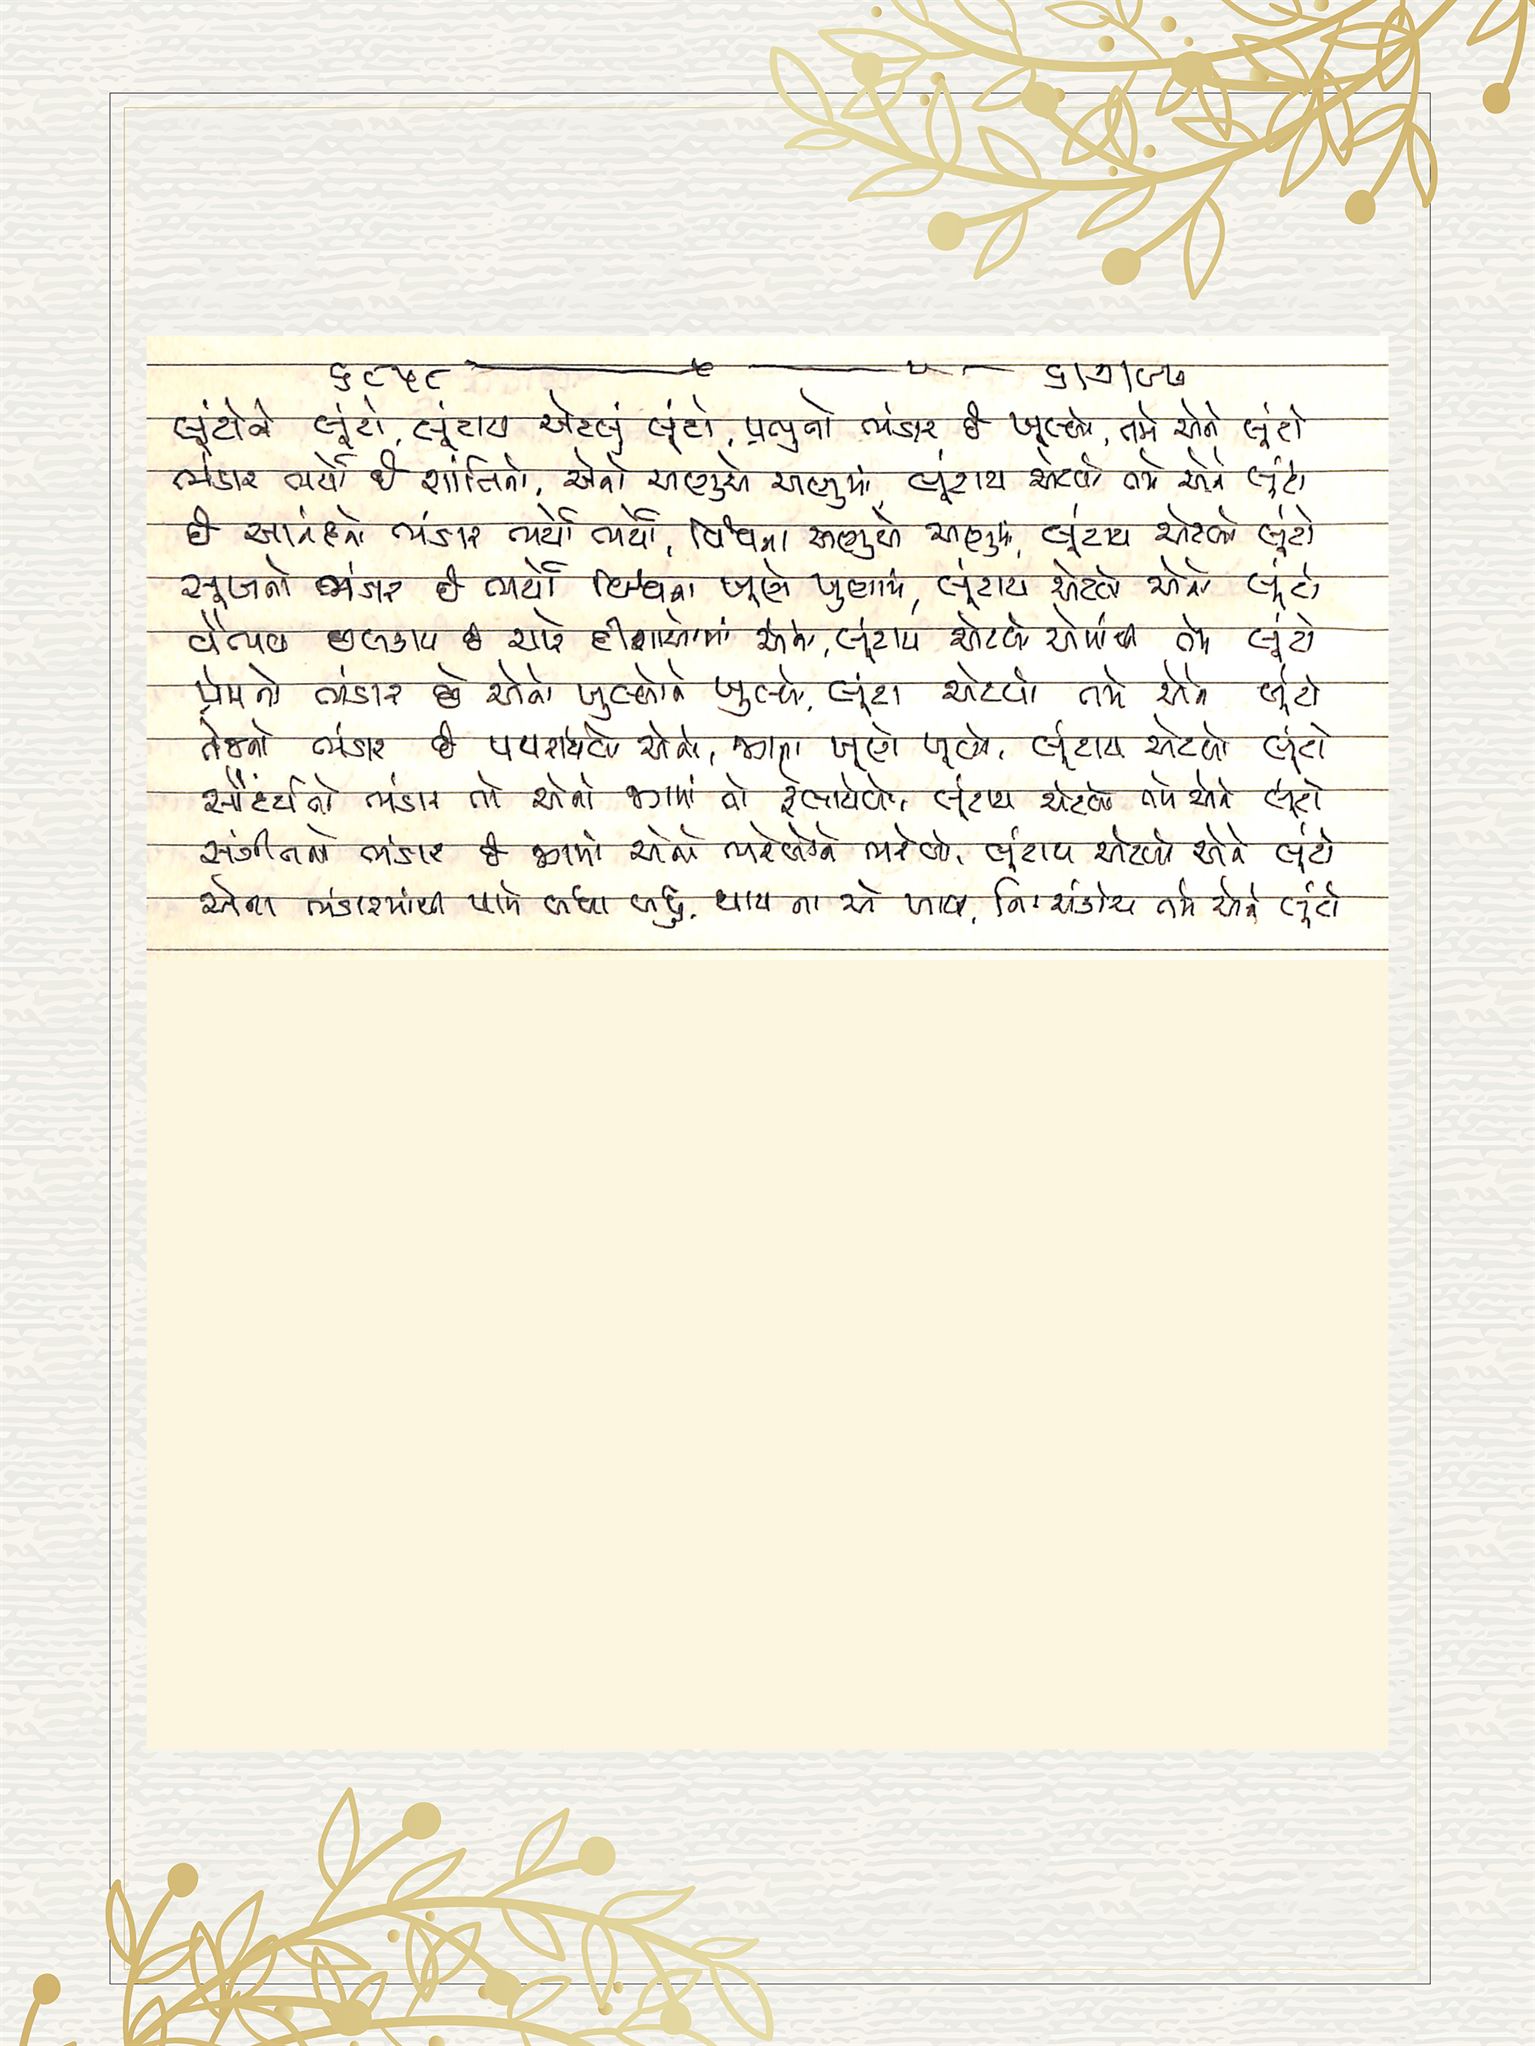 ૬૮૫૮ ૬/૭/૯૭
લૂંટોને લૂંટો, લૂંટાય એટલું લૂંટો, પ્રભુનો ભંડાર છે ખૂલ્લો, તમે એને લૂંટો
ભંડાર ભર્યો છે શાંતિનો, એનો અણુએ અણુમાં, લૂંટાય એટલો તમે એને લૂંટો
છે આનંદનો ભંડાર ભર્યો ભર્યો, વિશ્વના અણુએ અણુમાં, લૂંટાય એટલો લૂંટો
સૂખનો ભંડાર છે ભર્યો વિશ્વના ખૂણે ખુણામાં, લૂંટાય એટલો એને લૂંટો
વૈભવ છલકાય છે ચારે દીશાઓમાં એના, લૂંટાય એટલો એમાંથી તમે લૂંટો
પ્રેમનો ભંડાર છે એનો ખુલ્લોને ખુલ્લો, લૂંટો એટલો તમે એને લૂંટો
તેજનો ભંડાર છે પથરાયેલો એનો, જગના ખૂણે ખૂણે, લૂંટાય એટલો લૂંટો
સૌંદર્યનો ભંડાર તો એનો જગમાં તો ફેલાયેલો, લૂંટાય એટલો તમે એને લૂંટો
સંગીતનો ભંડાર છે જગમાં એનો ભરેલોને ભરેલો, લૂંટાય એટલો એને લૂંટો
એના ભંડારમાંથી પામે બધા બધું, થાય ના એ ખાલી, નિઃસંકોચ તમે એને લૂંટો